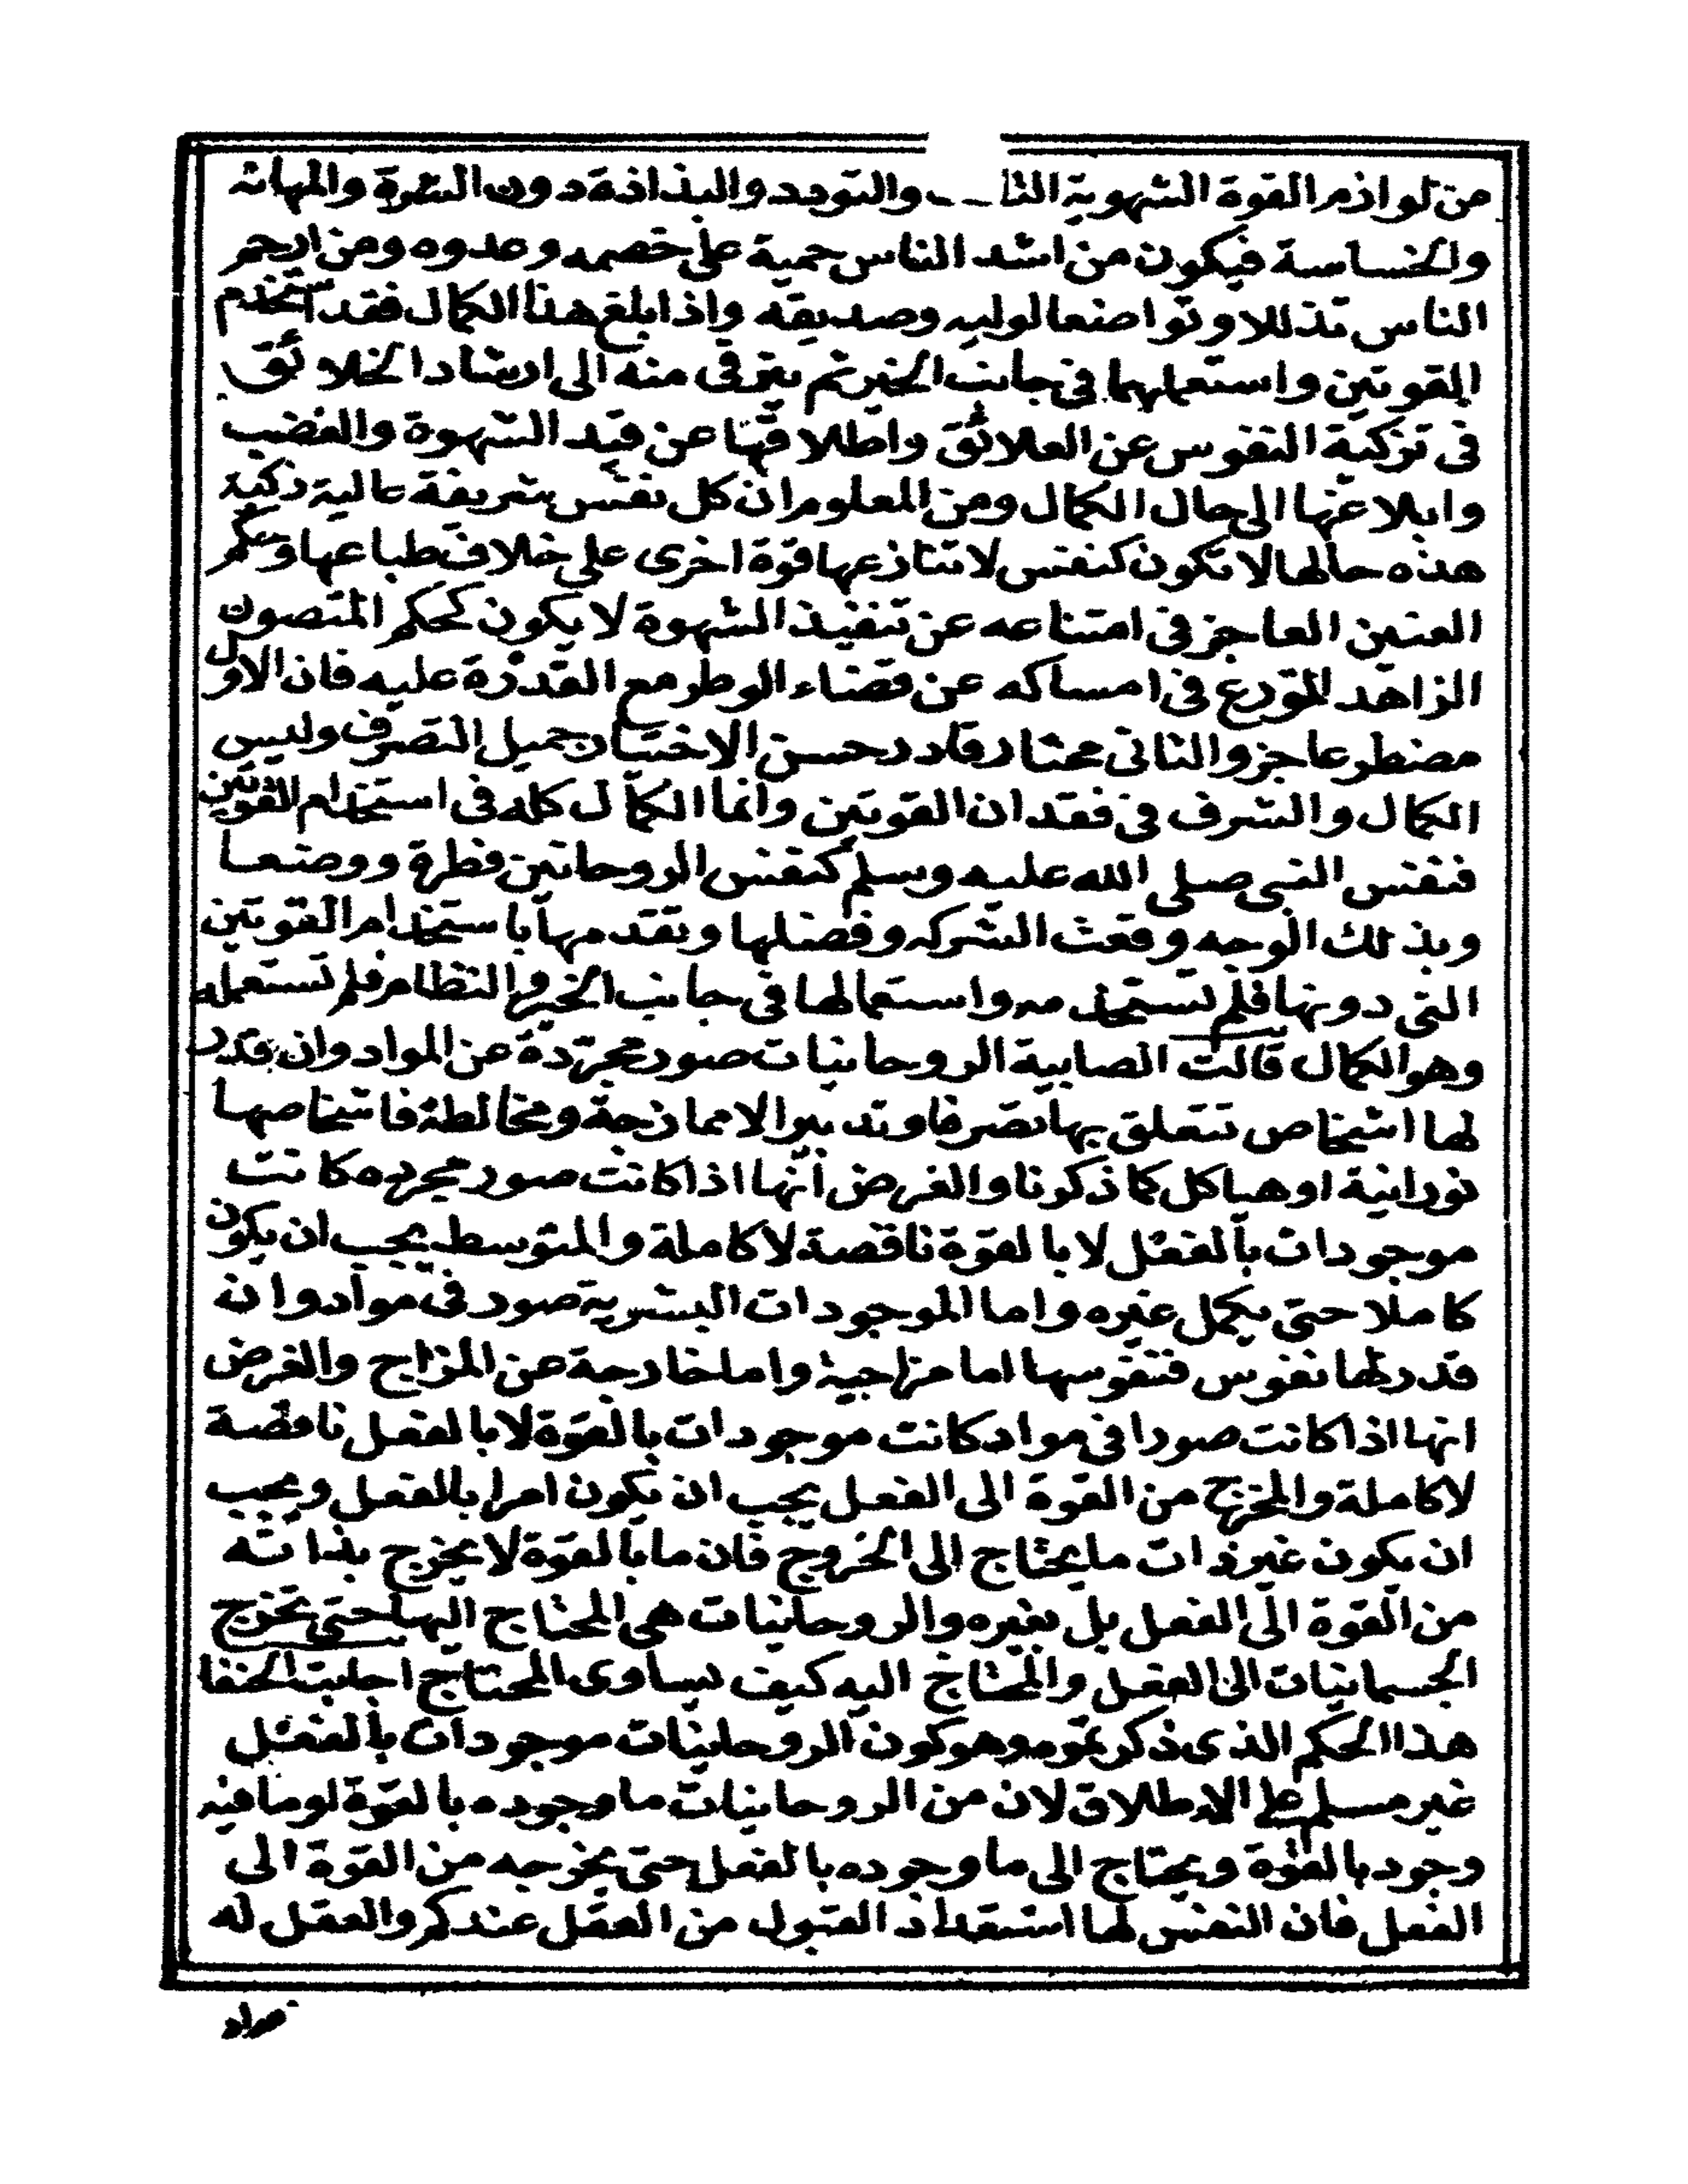 من لوازم القوة الشهوية التا والتودد والبذاذة دون الشرة والمهانه
والخساسة فيكون من اشد الناس حمية على خصمه وعدوه ومن ارحم
الناس تذللا وتواضعا لوليه وصديقه واذا بلغ هذا الكمال فقد استخدم
القوتين واستعملهما فى جانب الخير ثم يترقى منه الى ارشاد الخلائق
فى تزكية النفوس عن العلائق واطلاقها عن قيد الشهوة والغضب
وابلاغها الى حال الكمال ومن المعلوم ان كل نفس شريفة عالية زكية
هذه حالها لا تكون كنفس لا تنازعها قوة اخرى على خلاف طباعها وحكم
العنين العاجز فى امتناعه عن تنفيذ الشهوة لا يكون كحكم المتصون
الزاهد المتورع فى امساكه عن قضاء الوطر مع القدرة عليه فان الاول
مضطر عاجز والثانى مختار قادر حسن الاختيار جميل التصرف وليس
الكمال والشرف فى فقدان القوتين وانما الكمال كله فى استخدام القوتين
فنفس النبى صلى الله عليه وسلم كنفس الروحانين فطرة ووضعا
وبذلك الوجه وقعت الشركه وفضلها وتقدمها باستخدام القوتين
التى دونها فلم تستخدمه واستعمالها فى جانب الخير والنظام فلم تستعمله
وهو الكمال قالت الصابية الروحانيات صور مجردة عن المواد وان قدر
لها اشخاص تتعلق بها تصرفا وتدبيرا لا ممازجة ومخالطة فاشخاصها
نورانية او هياكل كما ذكرنا والغرض انها اذا كانت صور مجرده كانت
موجودات بالفعل لا بالقوة ناقصة لا كاملة والمتوسط يجب ان يكون
كاملا حتى يكمل غيره واما الموجودات البشرية صور فى مواد وان
قدر لها نفوس فنفوسها اما مزاجية واما خارجة عن المزاج والغرض
انها اذا كانت صورا فى مواد كانت موجودات بالقوة لا بالفعل ناقصة
لا كاملة والمخرج من القوة الى الفعل يجب ان يكون امرا بالفعل ويجب
ان يكون غير ذات ما يحتاج الى الخروج فان ما بالقوة لا يخرج بذاته
من القوة الى الفعل بل بغيره والروحانيات هى المحتاج اليها حتى تخرج
الجسمانيات الى الفعل والمحتاج اليه كيف يساوى المحتاج اجابت الحنفا
هذا الحكم الذى ذكرتموه وهو كون الروحانيات موجودات بالفعل
غير مسلم على الاطلاق لان من الروحانيات ما وجوده بالقوة او ما فيه
وجود بالقوة ويحتاج الى ما وجوده بالفعل حتى يخرجه من القوة الى
الفعل فان النفس لها استعداد القبول من العقل عندكم والعقل له